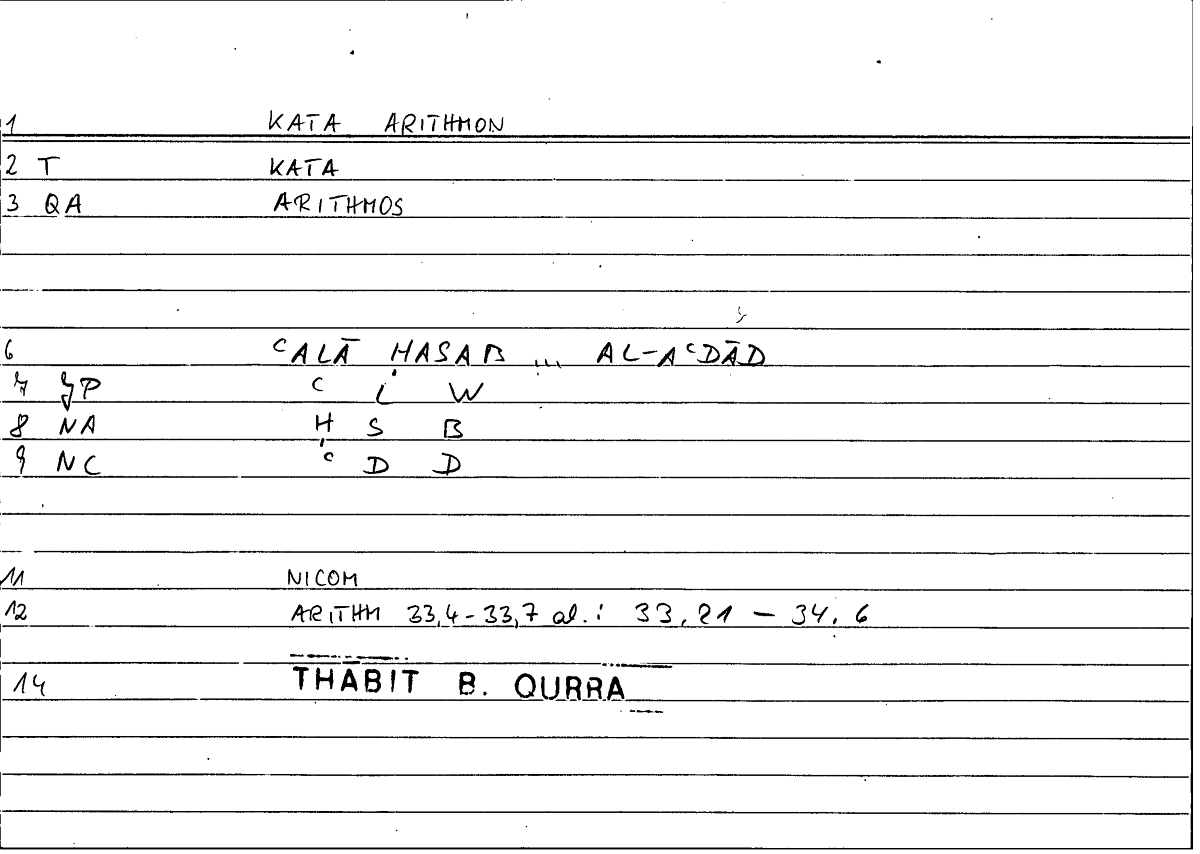 1 KATA ARITHMON
2 T KATA
3 QA ARITHMOS
6 ᶜALĀ ḤASAB ... AL-AᶜDĀD
7 JP ᶜ L W
8 NA Ḥ S B
9 NC ᶜ D D
11 NICOM
12 ARITHM 33,4-33,7 al.: 33,21 – 34,6
14 THĀBIT B. QURRA